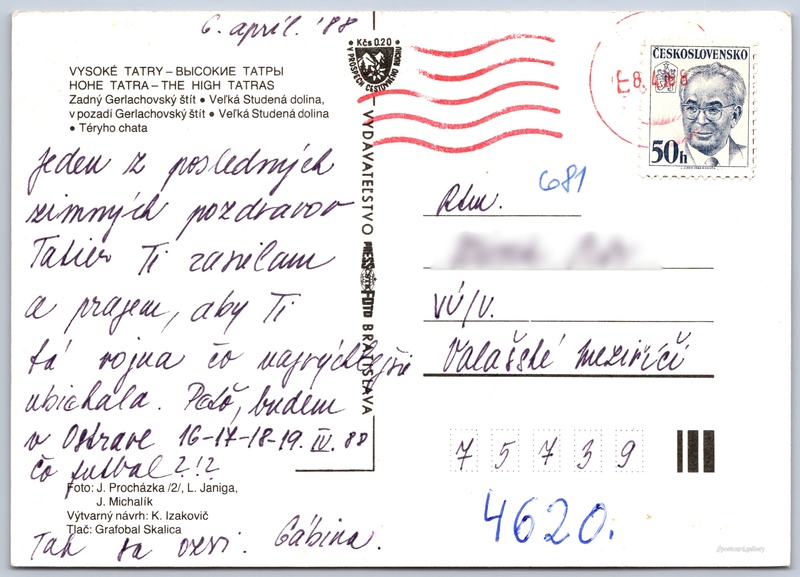 6. apríl. '88
VYSOKÉ TATRY – ВЫСОКИЕ ТАТРЫ
HOHE TATRA – THE HIGH TATRAS
Zadný Gerlachovský štít • Veľká Studená dolina,
v pozadí Gerlachovský štít • Veľká Studená dolina
• Téryho chata
Jeden z posledných
zimných pozdravov
Tatier Ti zasielam
a prajem, aby Ti
tá vojna čo najrýchlejšie
ubiehala. Peťo, budem
v Ostrave 16-17-18-19. IV. 88
čo futbal?!?
Foto: J. Procházka /2/, L. Janiga,
J. Michalík
Výtvarný návrh: K. Izakovič
Tlač: Grafobal Skalica
Tak sa ozvi. Gábina.
• Kčs 0.20 •
V PROSPECH CESTOVNÉHO RUCHU
VYDAVATEĽSTVO PRESSFOTO BRATISLAVA
8.4.88
ČESKOSLOVENSKO
50h
681
Rtm.
VÚ/V.
Valašské meziříčí
75739
4620.